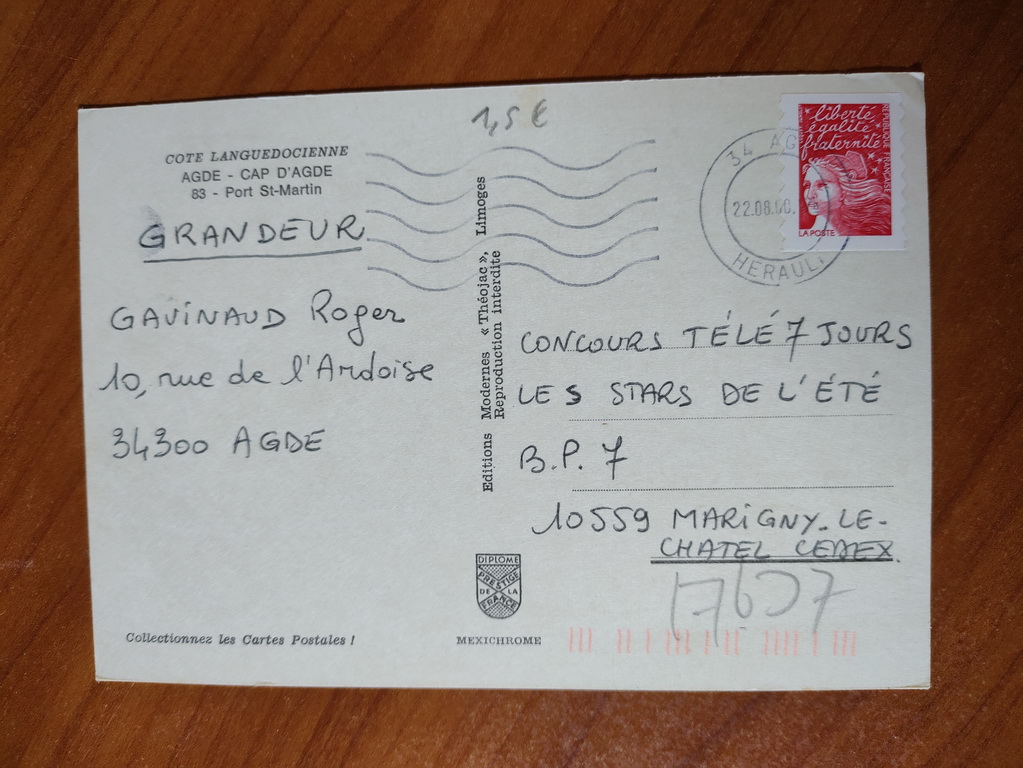 1,5 €
COTE LANGUEDOCIENNE
AGDE - CAP D'AGDE
83 - Port St-Martin
GRANDEUR
GAVINAUD Roger
10, rue de l'Ardoise
34300 AGDE
Collectionnez les Cartes Postales !
Editions Modernes « Théojac », Limoges
Reproduction interdite
DIPLOME
PRESTIGE
DE LA
FRANCE
MEXICHROME
34 AG
22.08.
HERAULT
liberté
égalité
fraternité
REPUBLIQUE FRANÇAISE
LA POSTE
CONCOURS TÉLÉ 7 JOURS
LES STARS DE L'ÉTÉ
B.P. 7
10559 MARIGNY-LE-
CHATEL CEDEX.